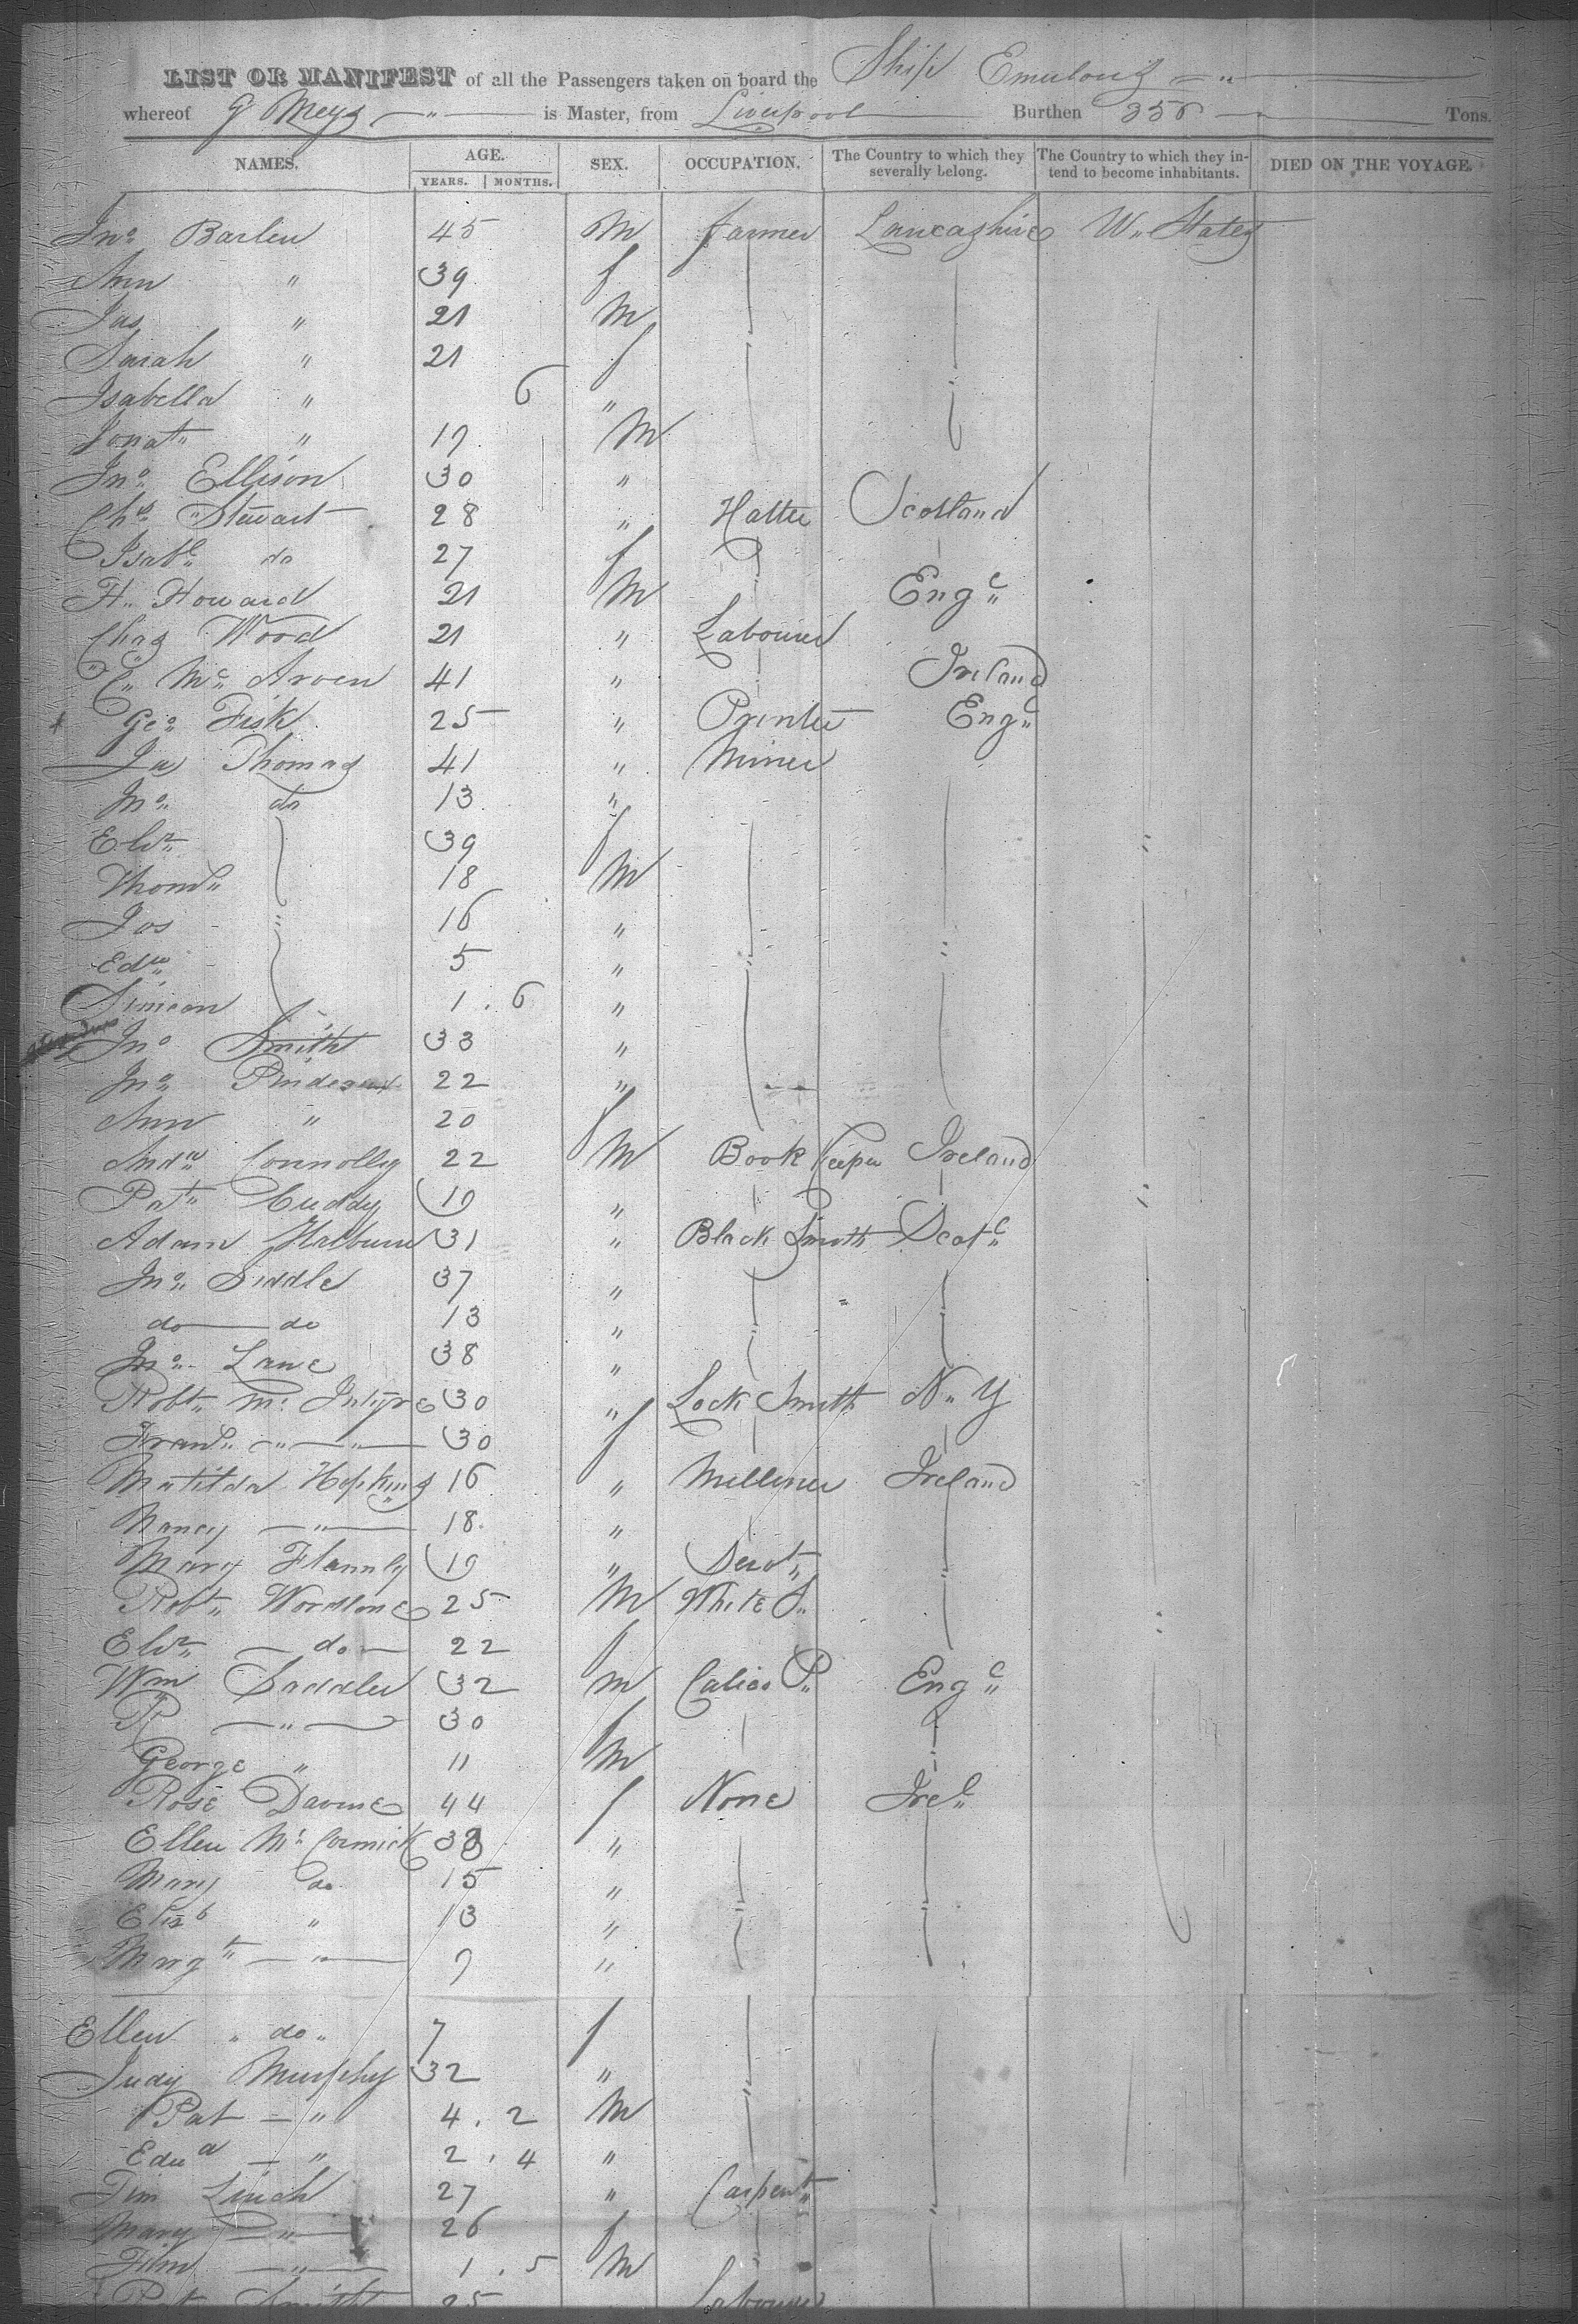 LIST OR MANIFEST of all the Passengers taken on board the Ship Emulous
whereof G Meyz is Master, from Liverpool Burthen 356 Tons.
NAMES. AGE. YEARS. MONTHS. SEX. OCCUPATION. The Country to which they severally belong. The Country to which they intend to become inhabitants. DIED ON THE VOYAGE.
Jno. 45 M farmer Lancashire U. States
Ann " 39 f
Jas " 21 M
Sarah " 21 f
Isabella " 6 "
Jonat " 19 M
Jno. Ellison 30 "
Chs. Stewart 28 " Hatter Scotland
Isabl. do 27 f
H. Howard 21 M Engd.
Chas Wood 21 " Labourer
C. Mc. 41 " Ireland
Geo. Fisk 25 " Printer Engd.
Ja Thomas 41 " Miner
Jno. do 13 "
Elizr. 39 f
Thoms. 18 M
Jos 16 "
Edw. 5 "
Simeon 1 . 6 "
Jno Smith 33 "
Jno. 22 "
Ann " 20 f
Andw. Connolly 22 M Book Keeper Ireland
Pat. Cuddy 19 "
Adam 31 " Black Smith Scotd.
Jno. Siddle 37 "
do do 13 "
Jno. Lane 38 "
Robt. Mc. Intyre 30 " Lock Smith N. Y
Frans. " 30 f
Matilda Hopkins 16 " Milliner Ireland
Nancy " 18 "
Mary Flannly 19 " Servt.
Robt. 25 M White S.
Elizr. do 22 f
Wm Saddler 32 M Calico P. Engd.
R " 30 f
George " 11 M
Rose Davine 44 f None Ired.
Ellen Mc. Cormick 38 "
Mary do 15 "
Elizb " 13 "
Margt. " 9 "
Ellen " do " 7 f
Judy Murphy 32 "
Pat " 4 . 2 M
Edwd " 2 . 4 "
Tim Linch 27 " Carpent.
Mary " 26 f
" 1 . 5 M
Pat Smith 25 Labourer